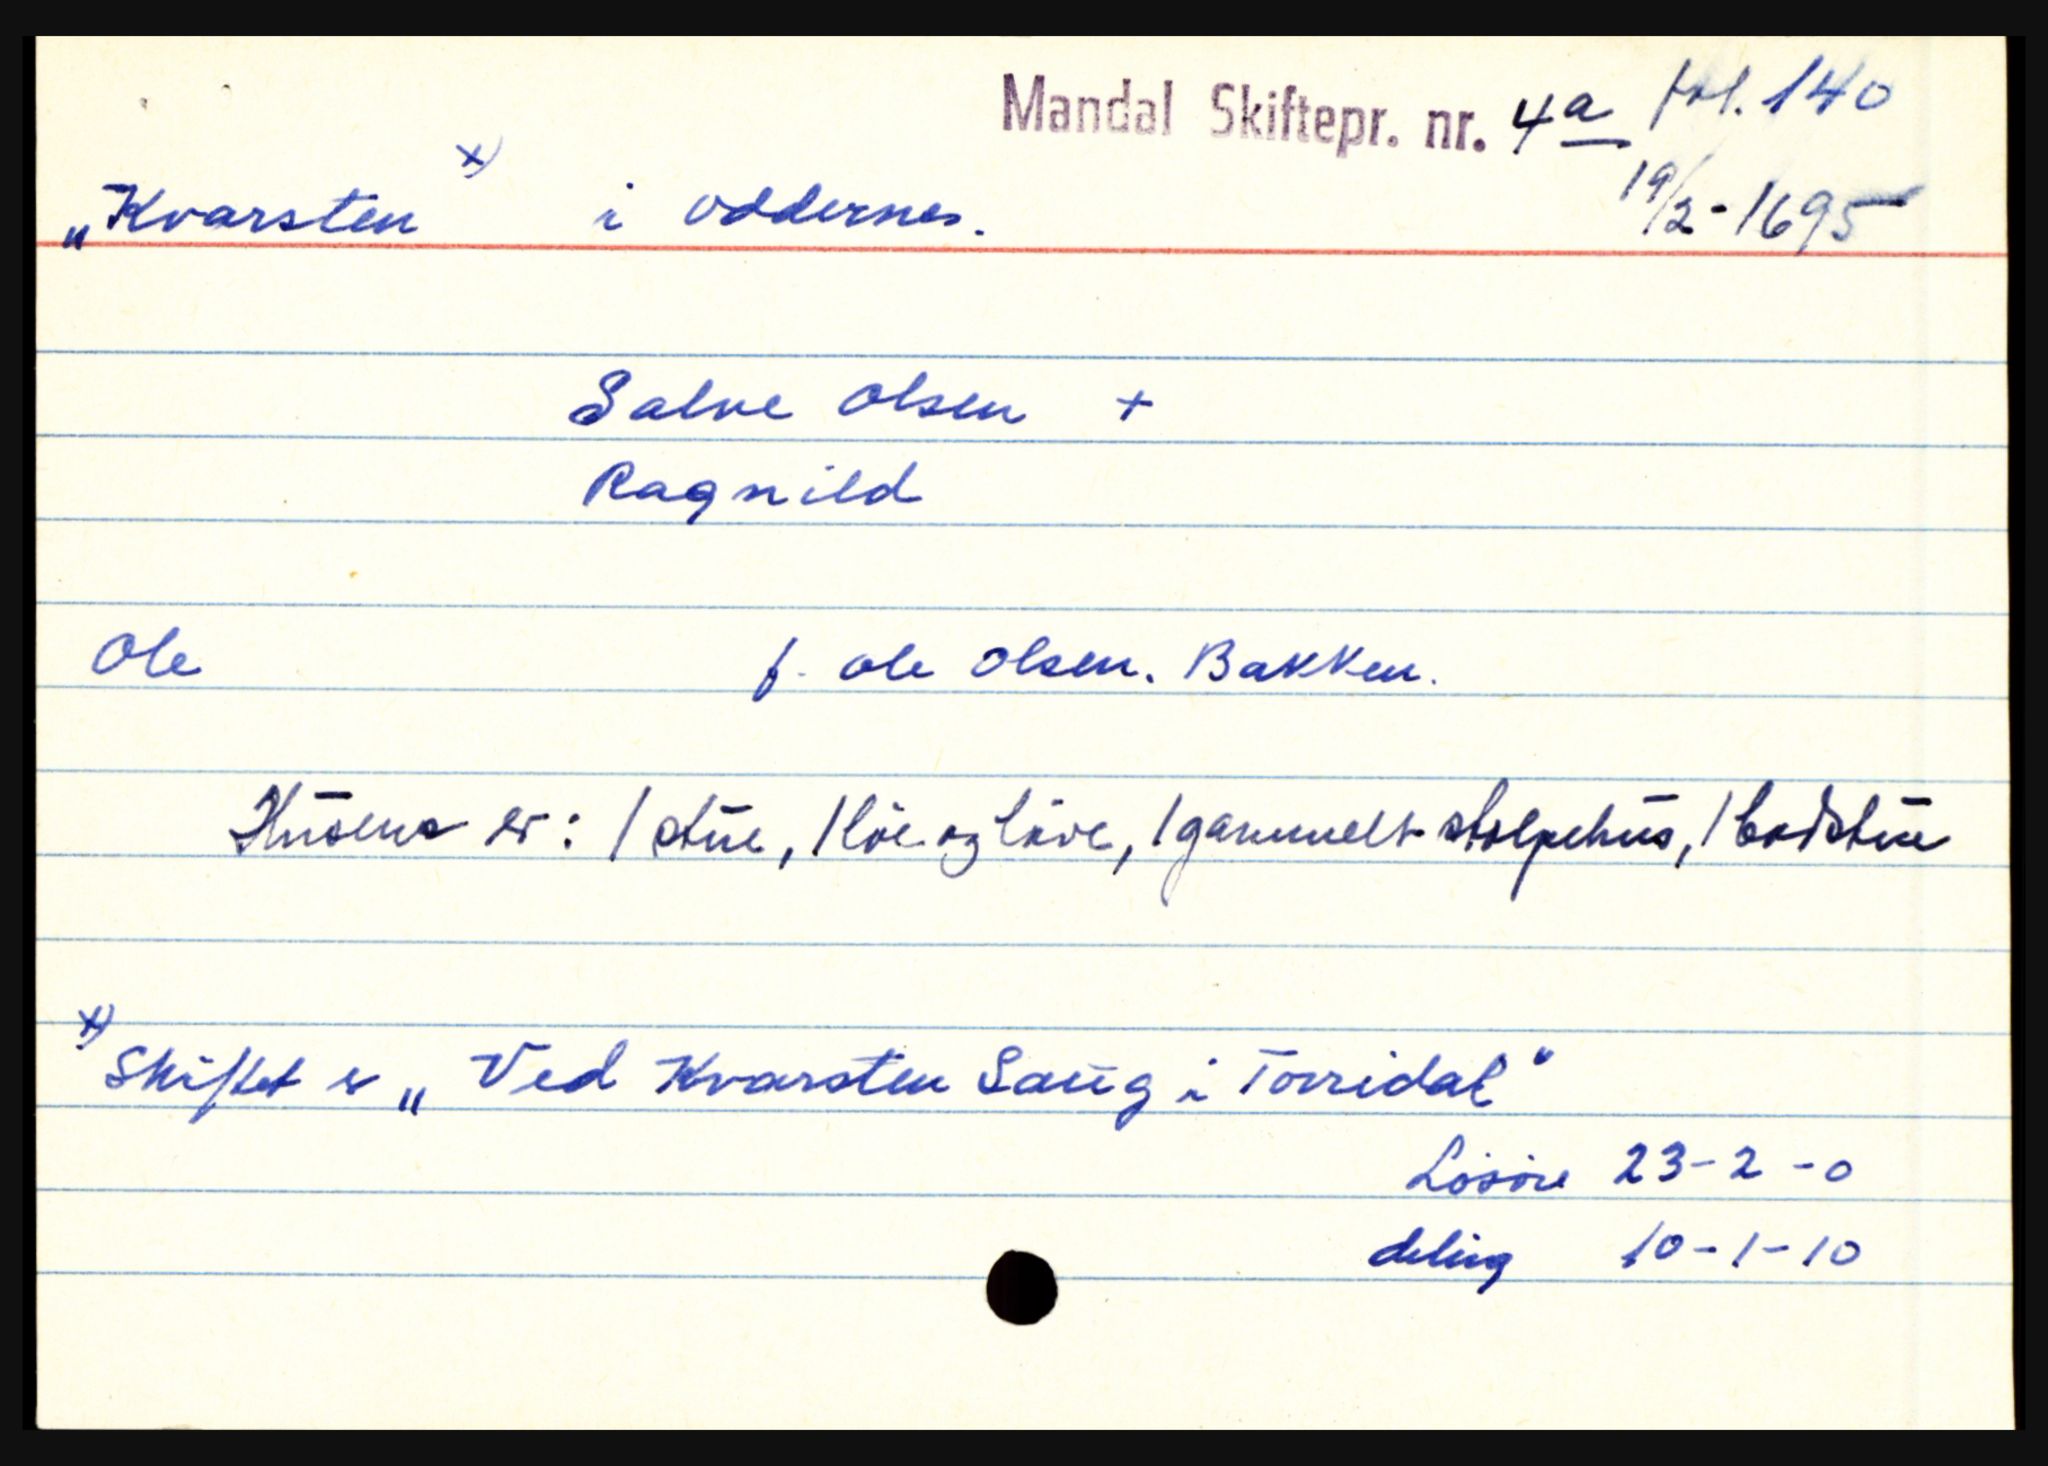 Mandal Skiftepr. nr. 4a fol. 140
19/2-1695
„Kvarsten" x) i Oddernes.
Salve Olsen +
Ragnild
Ole f. Ole Olsen. Bakken.
Husene er: 1 stue, 1 löe og löve, 1 gammelt stolpehus, 1 badstue
x) Skiftet er „Ved Kvarsten Saug i Torridal"
Lösöre 23-2-0
deling 10-1-10